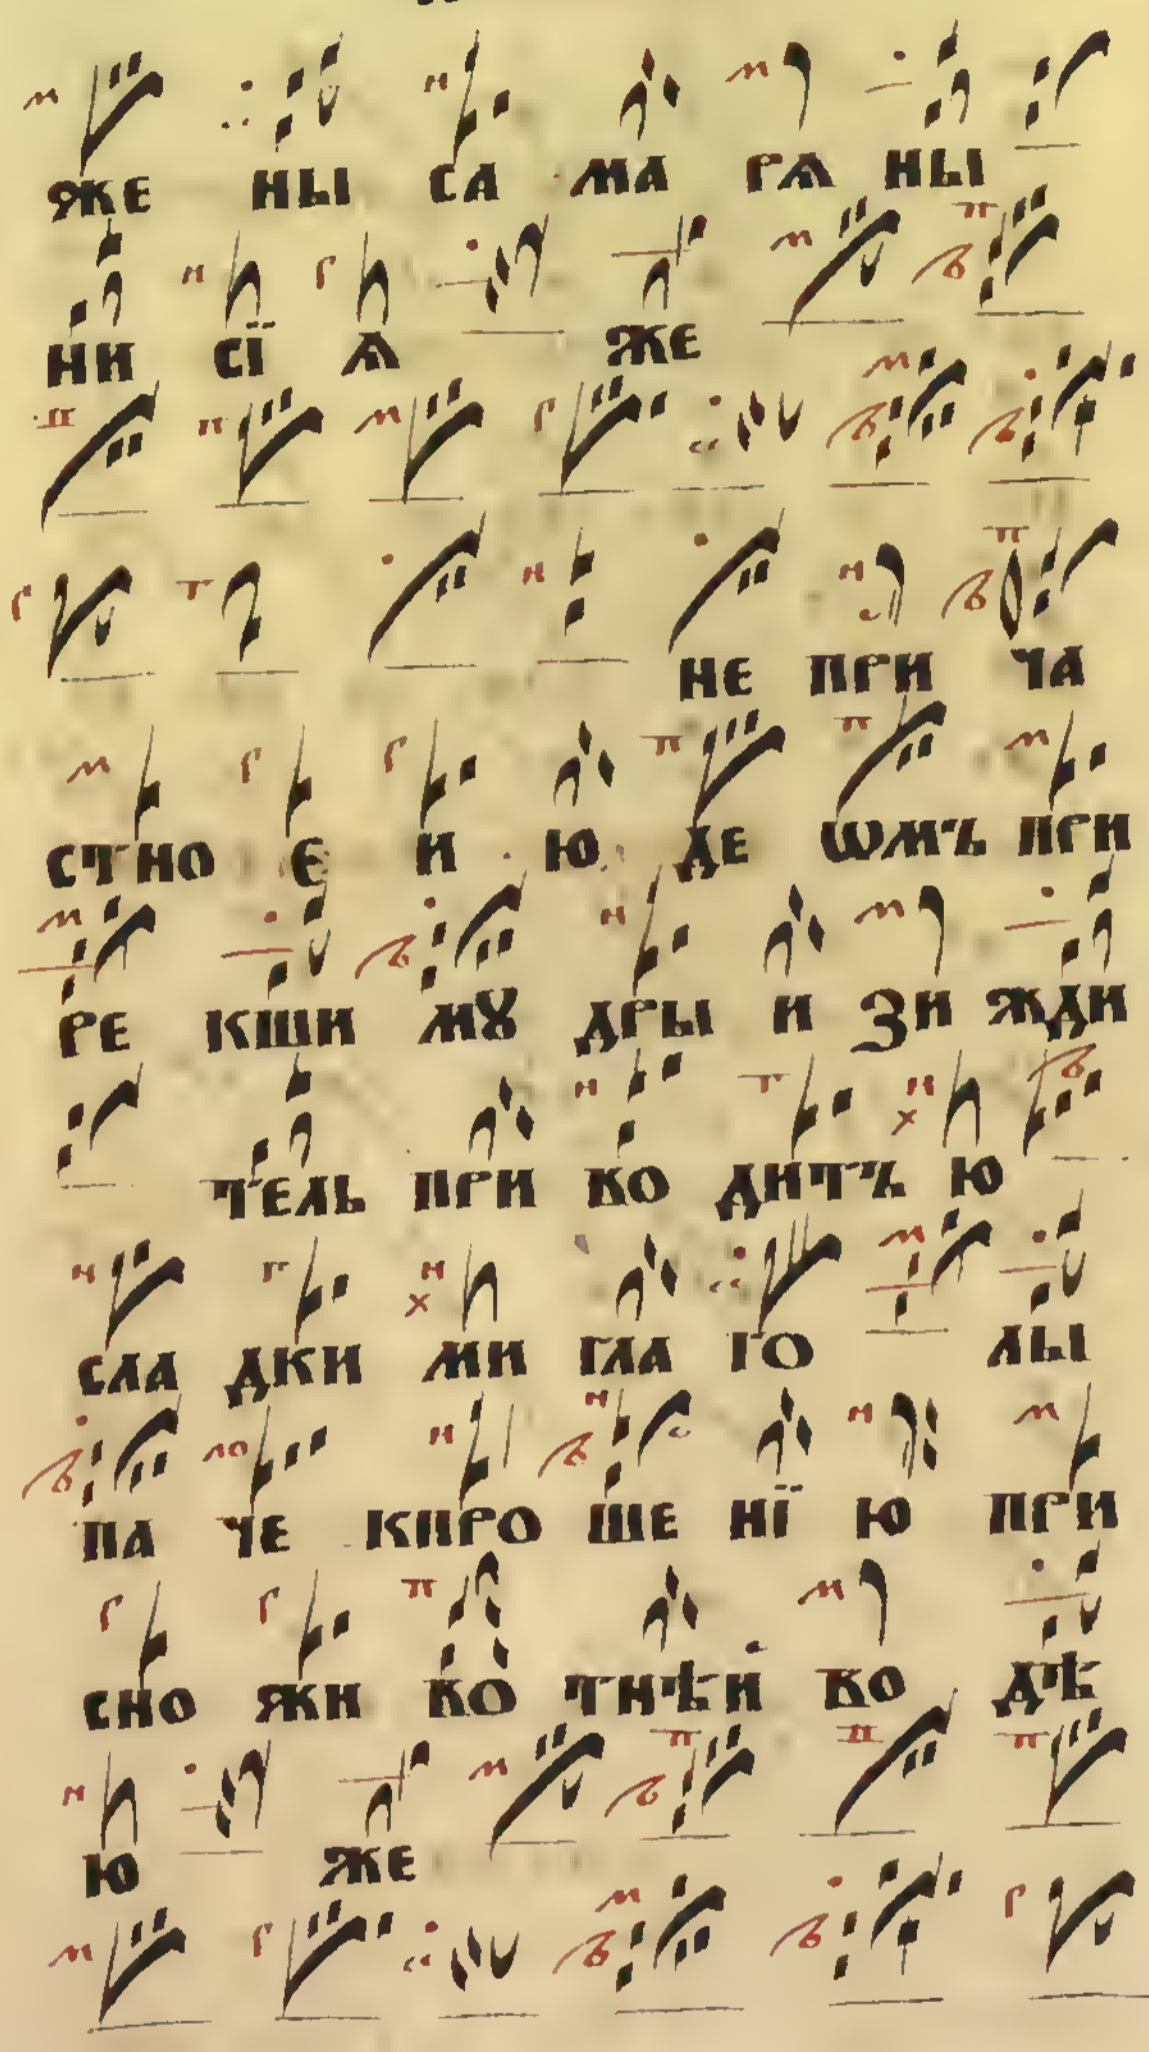 ЖЕ НЫ СА МА РѦ НЫ
НИ СЇ Ѧ ЖЕ
НЕ ПРИ ЧА
СТНО Є И Ю ДЕ ѠМЪ ПРИ
РЕ КШИ МꙊ ДРЫ И ЗИ ЖДИ
ТЕЛЬ ПРИ ВО ДИТЪ Ю
СЛА ДКИ МИ ГЛА ГО ЛЫ
ПА ЧЕ КПРО ШЕ НЇ Ю ПРИ
СНО ЖИ ВО ТНѢЙ ВО ДѢ
Ю ЖЕ